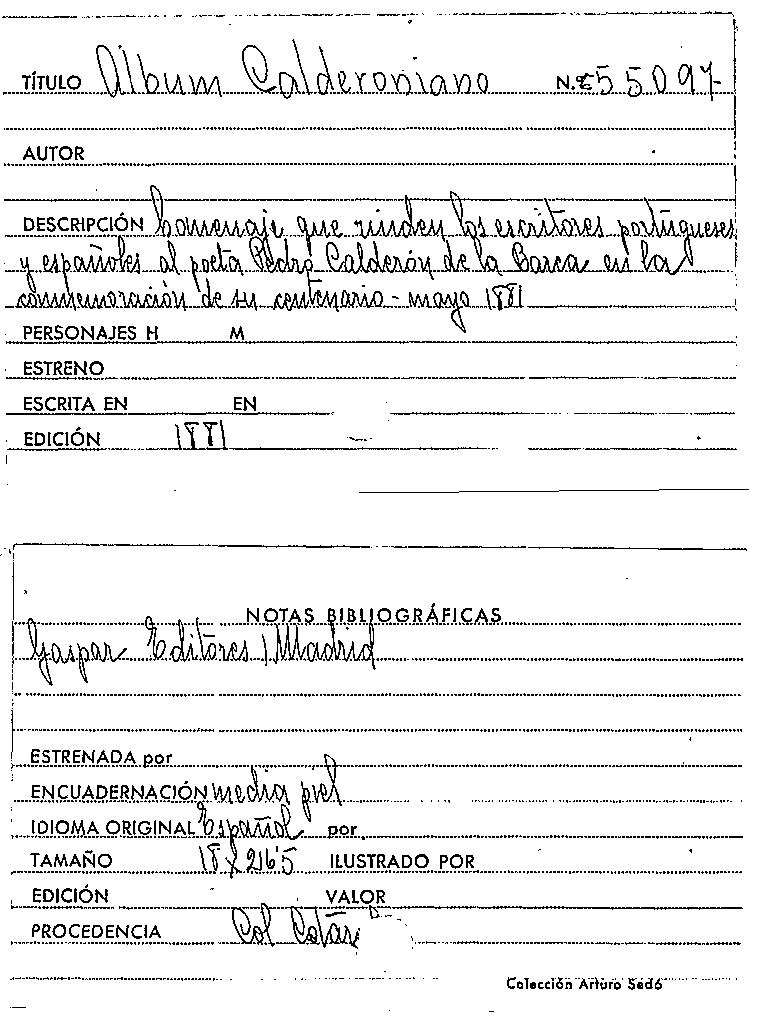 TÍTULO Álbum Calderoniano N.º 55097
AUTOR
DESCRIPCIÓN homenaje que rinden los escritores portugueses
y españoles al poeta Pedro Calderón de la Barca en la
conmemoración de su centenario - mayo 1881
PERSONAJES H M
ESTRENO
ESCRITA EN EN
EDICIÓN 1881
NOTAS BIBLIOGRÁFICAS
Gaspar Editores | Madrid
ESTRENADA por
ENCUADERNACIÓN media piel
IDIOMA ORIGINAL Español por
TAMAÑO 18 x 26'5 ILUSTRADO POR
EDICIÓN VALOR
PROCEDENCIA Col
Colección Arturo Sedó